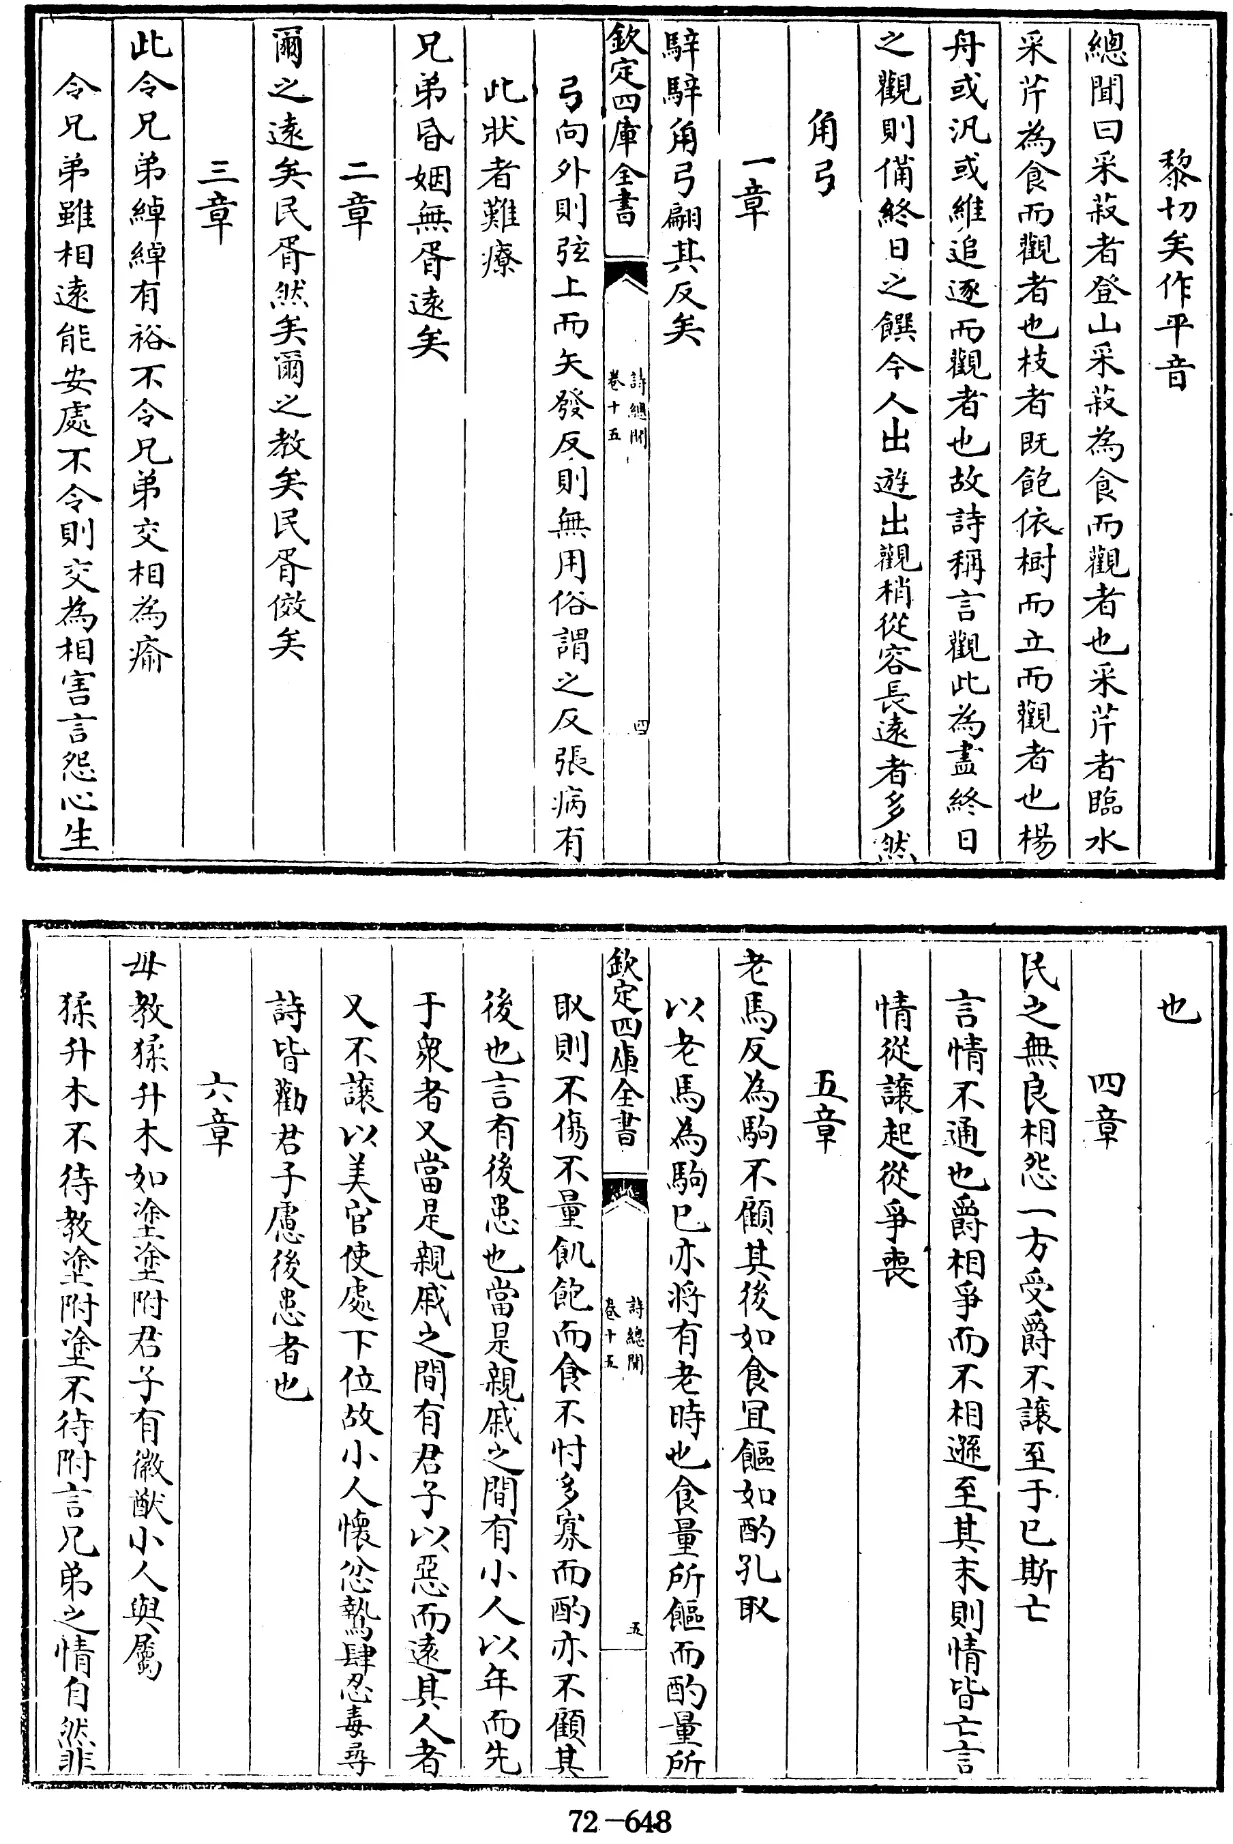 黎切矣作平音
總聞曰采菽者登山采菽為食而觀者也采芹者臨水
采芹為食而觀者也枝者既飽依樹而立而觀者也楊
舟或汎或維追逐而觀者也故詩稱言觀此為盡終日
之觀則備終日之饌今人出遊出觀稍從容長逺者多然
角弓
一章
騂騂角弓翩其反矣
欽定四庫全書
詩總聞
卷十五
四
弓向外則弦上而矢發反則無用俗謂之反張病有
此狀者難療
兄弟昏姻無胥逺矣
二章
爾之逺矣民胥然矣爾之教矣民胥傚矣
三章
此令兄弟綽綽有裕不令兄弟交相為瘉
令兄弟雖相逺能安處不令則交為相害言怨心生
也
四章
民之無良相怨一方受爵不讓至于已斯亡
言情不通也爵相爭而不相遜至其末則情皆亡言
情從讓起從爭喪
五章
老馬反為駒不顧其後如食宜饇如酌孔取
以老馬為駒已亦將有老時也食量所饇而酌量所
欽定四庫全書
詩總聞
卷十五
五
取則不傷不量飢飽而食不忖多寡而酌亦不顧其
後也言有後患也當是親戚之間有小人以年而先
于衆者又當是親戚之間有君子以惡而逺其人者
又不讓以美官使處下位故小人懷忿騺肆忍毒尋
詩皆勸君子慮後患者也
六章
毋教猱升木如塗塗附君子有徽猷小人與屬
猱升木不待教塗附塗不待附言兄弟之情自然非
72-648